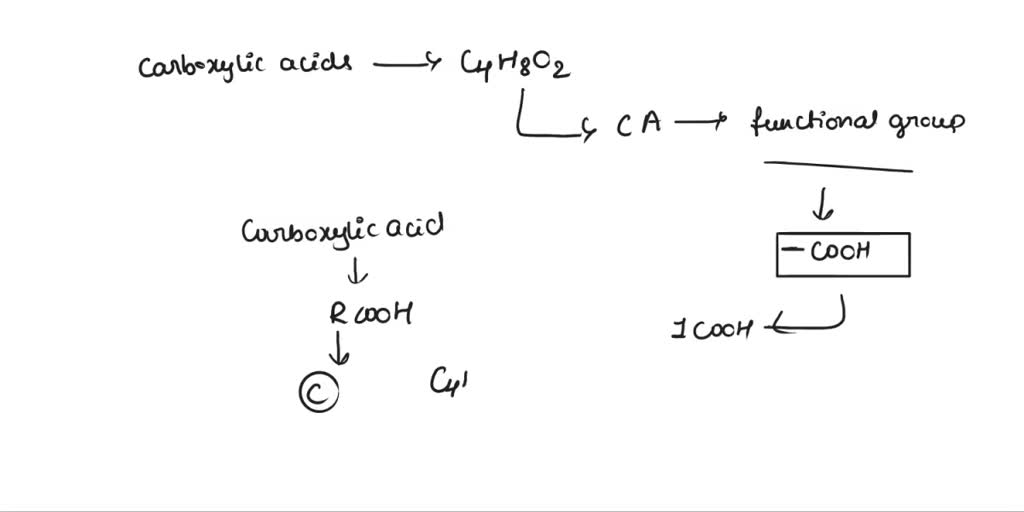 Carboxylic acids → C4H8O2
CA → functional group
↓
Carboxylic acid
- COOH
↓
R COOH
1 COOH ←
↓
C
C4H